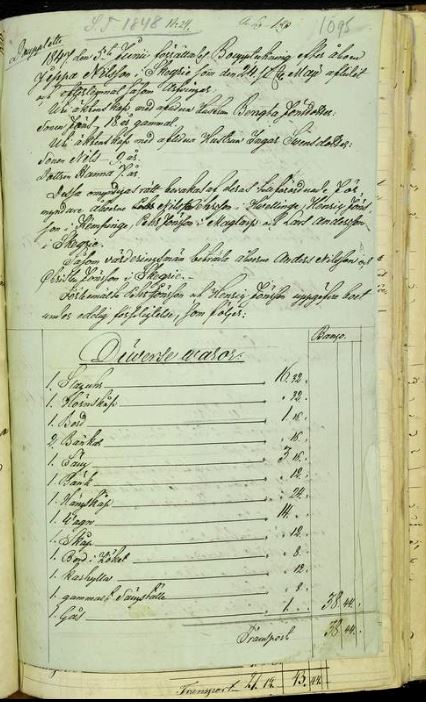 S.T. 1848
1095
Duplette
1847 den 5te Junii förrättades Bouppteckning efter åbon
Jeppa Nilsson i Skegrie som den 24 sistl. May aflidit
och efterlemnat såsom Arfvingar.
Uti äktenskap med afledna Hustrun Bengta Jönsdotter:
Sonen Jöns, 18 år gammal.
Uti äktenskap med afledna Hustrun Ingar Svensdotter:
Sonen Nils - 9 år.
Dottren Hanna 7 år.
Dessa omyndigas rätt bevakas af deras tillförordnade För
myndare åboerne Nils i Hvellinge, Henric Jöns
son i Kempinge, Pehr Jönsson i Maglarp och Lars Andersson
i Skegrie.
Såsom värderingsmän biträdde åboerne Anders Nilsson och
Christen Jönsson i Skegrie.
Förbemälte Pehr Jönsson och Henric Jönsson uppgåfvo boet
under edelig förpligtelse, som följer:
Banco.
Diverse waror.
1. Stuguhr 16. 32.
1. Hörnskåp . 32.
1. Bord 1. 16.
2. Bänkar . 16.
1. Säng 3. 16.
1. Bänk . 12.
1. Hängskåp . 24.
1. Wagn 14. .
1. Skåp . 12.
1. Bord i Köket . 8.
1. Karhylla . 12.
1. gammal Sängställe . 8.
1. Gås . 1. . 38. 44.
Transport 38. 44.
Transport 21. 14. 43. 44.